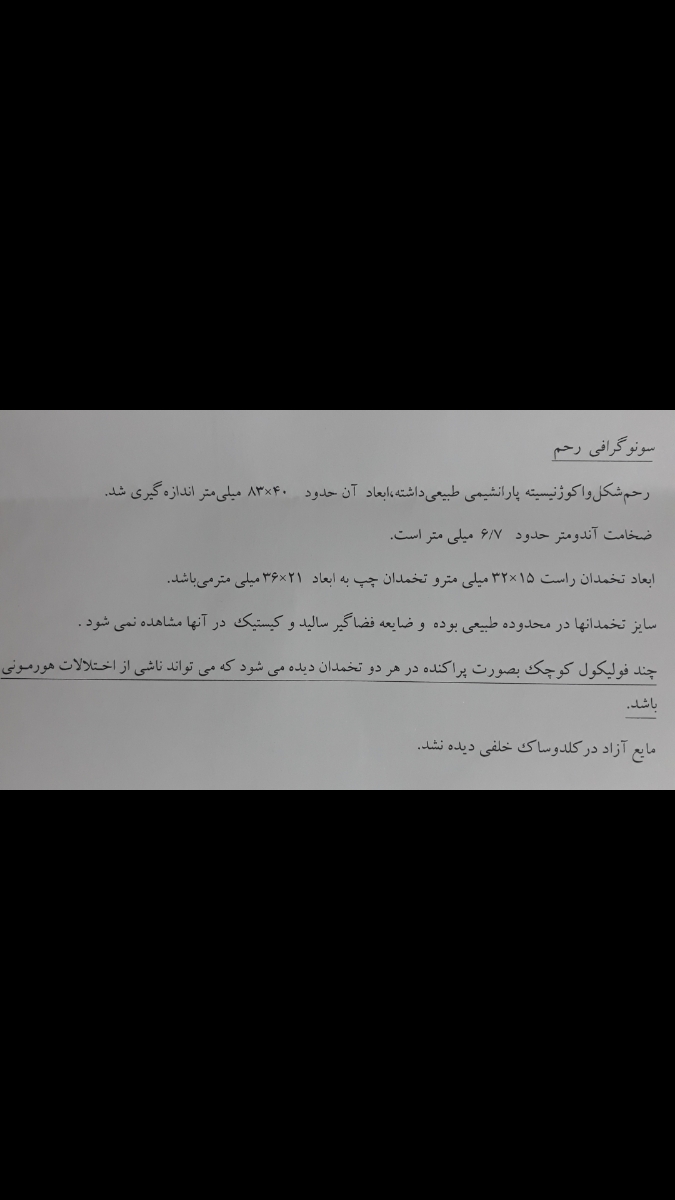 سونوگرافی رحم
رحم‌شکل‌واکوژنیسیته پارانشیمی طبیعی‌داشته،ابعاد آن حدود ۴۰×۸۳ میلی‌متر اندازه‌گیری شد.
ضخامت آندومتر حدود ۶/۷ میلی متر است.
ابعاد تخمدان راست ۱۵×۳۲ میلی مترو تخمدان چپ به ابعاد ۲۱×۳۶ میلی مترمی‌باشد.
سایز تخمدانها در محدوده طبیعی بوده و ضایعه فضاگیر سالید و کیستیک در آنها مشاهده نمی شود .
چند فولیکول کوچک بصورت پراکنده در هر دو تخمدان دیده می شود که می تواند ناشی از اختلالات هورمونی
باشد.
مایع آزاد درکلدوساک خلفی دیده نشد.